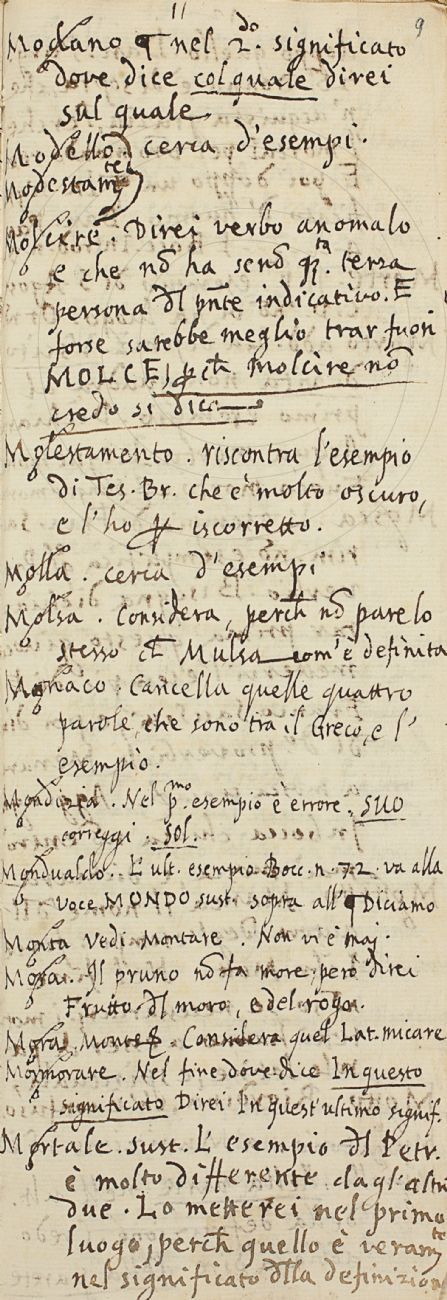 11
9
Modano ¶ nel 2.do significato
dove dice colquale direi
sul quale
Modello } cerca d'esempi.
Modestamte
Molcire. Direi verbo anomalo
e che nō ha senō qta. terza
persona dl pn̄te indicativo. E
forse sarebbe meglio trar fuori
MOLCE, ꝑch̄ molcire nō
credo si dica
Molestamento. riscontra l'esempio
di Tes. Br. che è molto oscuro,
e l'ho ꝑ iscorretto.
Molla. cerca d'esempi
Molsa. Considera, perch̄ nō pare lo
stesso ch̄ Mulsa com'è definita
Monaco. Cancella quelle quattro
parole, che sono trà il Greco, e l'
esempio.
Nel pmo. esempio è errore. SUO
correggi. SOL.
Mondualdo. L'ult. esempio Bocc. n. 72. va alla
voce MONDO sust. sopra all'¶ Diciamo
Monta vedi Montare. Non vi è maj.
Mora. Il pruno nō fa more, però direi
Frutto dl moro, e del rogo.
Mora. Considera quel Lat. micare
Mormorare. Nel fine, dove dice In questo
significato Direi In quest'ultimo signif.
Mortale. sust. L'esempio dl Petr.
è molto differente dagl'altri
due. Lo metterei nel primo
luogo, perch̄ quello è veramte
nel significato dlla definizion